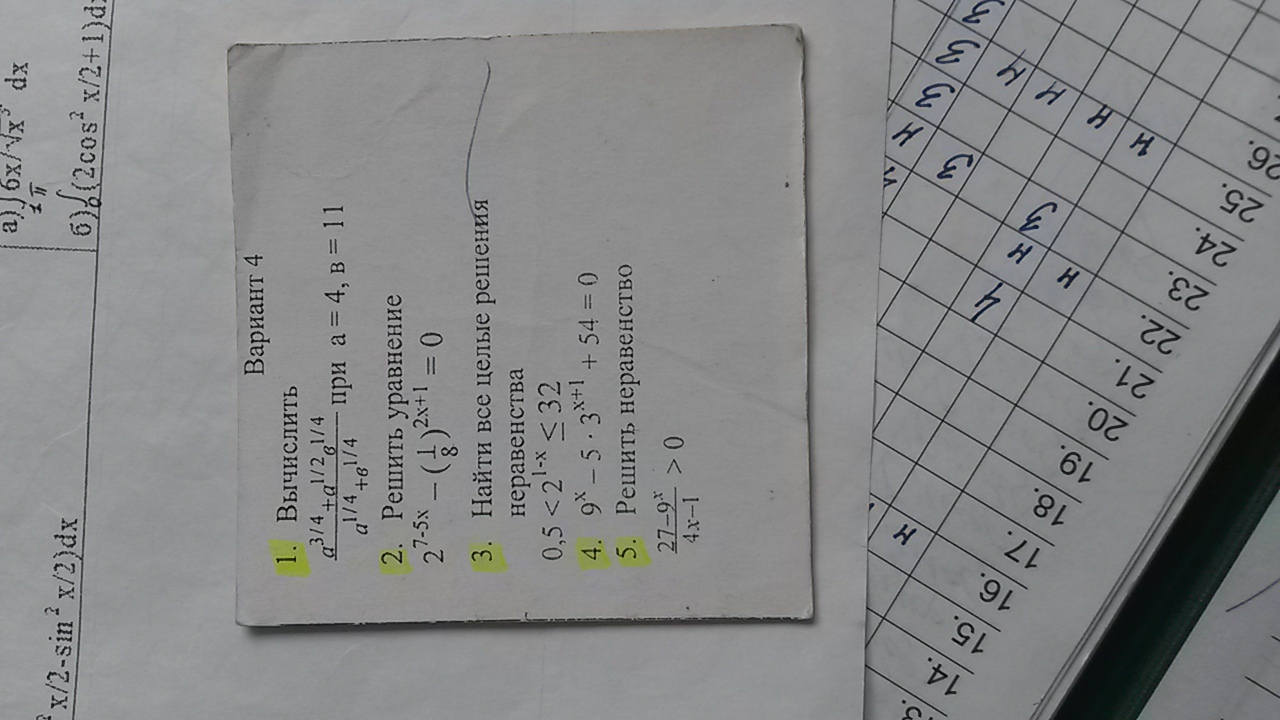 Вариант 4
1. Вычислить
a^{3/4}+a^{1/2}в^{1/4} / a^{1/4}+в^{1/4} при a = 4, в = 11
2. Решить уравнение
2^{7-5x} – (1/8)^{2x+1} = 0
3. Найти все целые решения
неравенства
0,5 < 2^{1-x} ≤ 32
4. 9^x – 5 · 3^{x+1} + 54 = 0
5. Решить неравенство
27–9^x / 4x–1 > 0
а) ∫ 6x/√x^3 dx
б) ∫ (2cos^2 x/2+1)d
x/2-sin^2 x/2)dx
14.
15.
16. н
17.
18.
19.
20.
21.
22. н
23.
24.
25.
26.